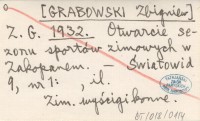 [GRABOWSKI Zbigniew]
Z. G. 1932. Otwarcie se-
zonu sportów zimowych w
Zakopanem. — Światowid
9, nr 1: , il.
Zim. wyścigi konne.
BT/018/0114